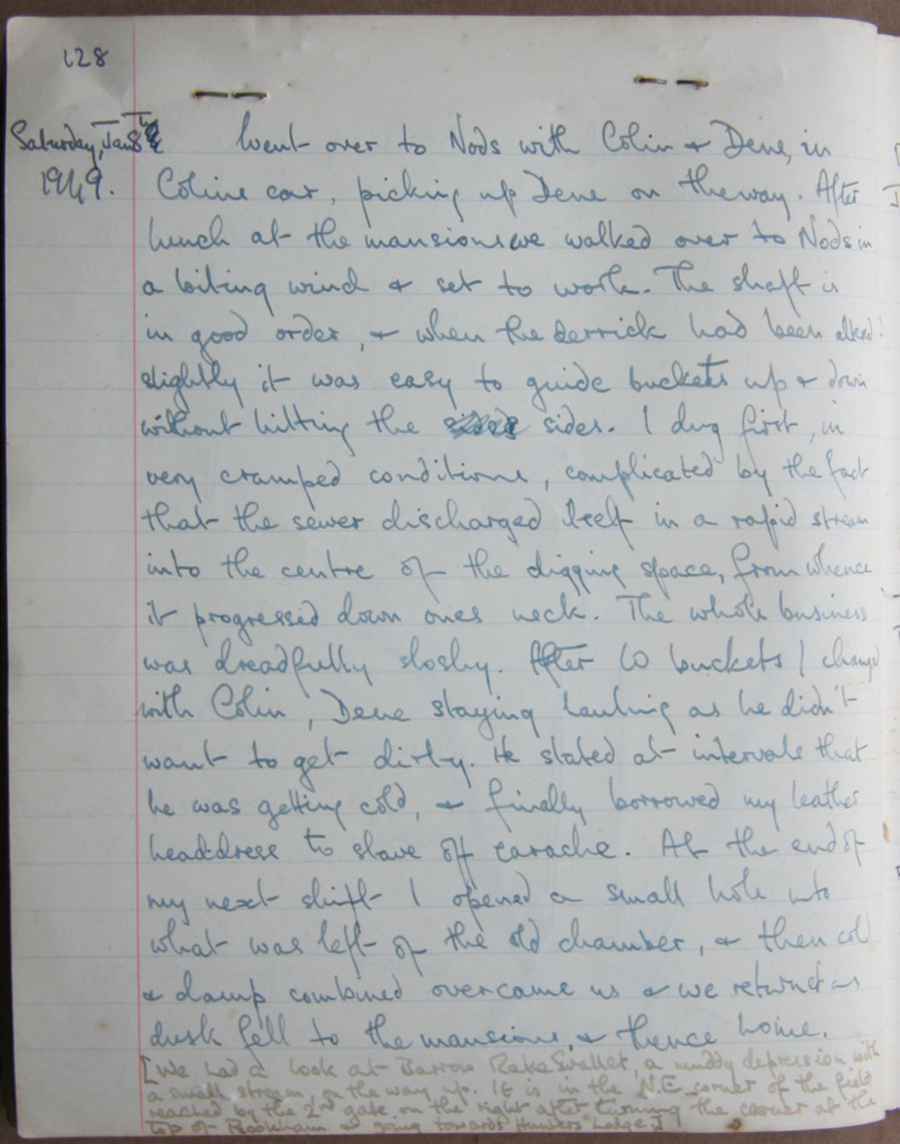 128
Saturday, Jan 8th
1949.
Went over to Nods with Colin & Dene, in
Colins car, picking up Dene on the way. After
lunch at the mansions we walked over to Nods in
a biting wind & set to work. The shaft is
in good order, & when the derrick had been altered
slightly it was easy to guide buckets up & down
without hitting the sides. I dug first, in
very cramped conditions, complicated by the fact
that the sewer discharged itself in a rapid stream
into the centre of the digging space, from whence
it progressed down ones neck. The whole business
was dreadfully sloshy. After 60 buckets I changed
with Colin, Dene staying hauling as he didn't
want to get dirty. He stated at intervals that
he was getting cold, & finally borrowed my leather
headdress to stave off earache. At the end of
my next shift I opened a small hole into
what was left of the old chamber, & then cold
& damp combined overcame us & we returned as
dusk fell to the mansions, & thence home.
[We had a look at Barrow Rake Swallet, a muddy depression with
a small stream, on the way up. It is in the N.E. corner of the field
reached by the 2nd gate on the right after turning the corner at the
top of Rookham as going towards Hunters Lodge.]